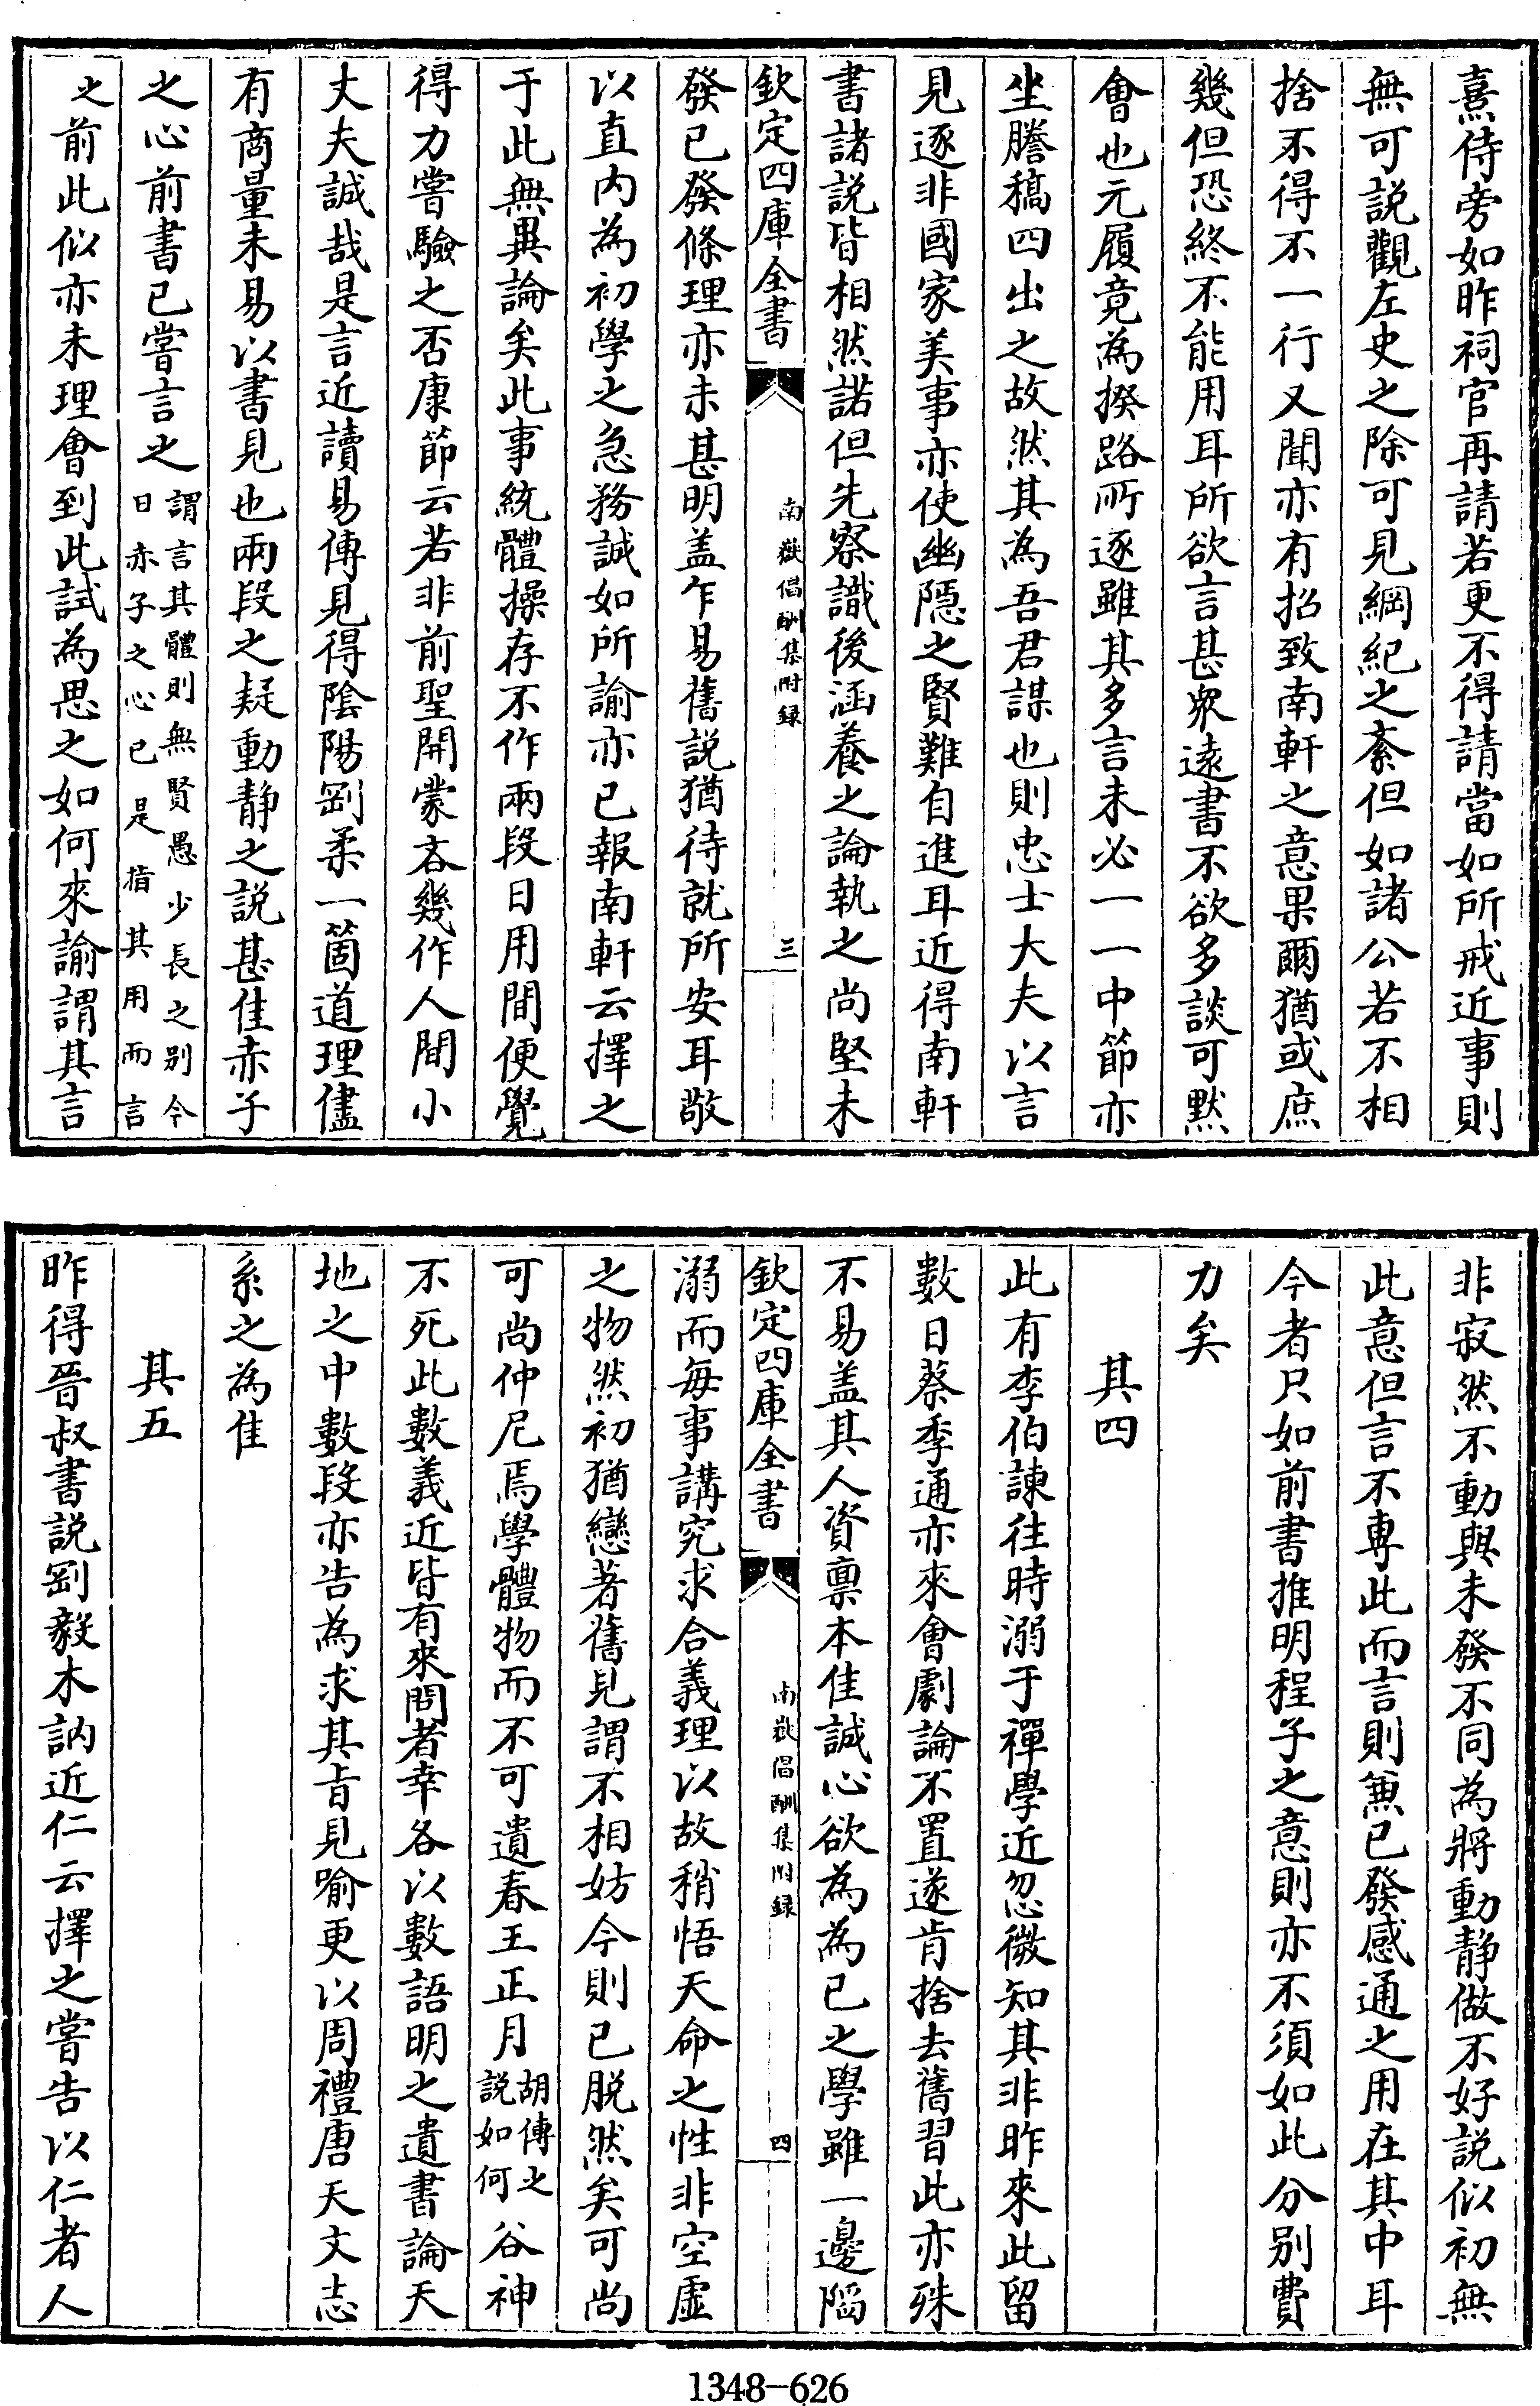 熹侍旁如昨祠官再請若更不得請當如所戒近事則
無可説觀左史之除可見綱紀之紊但如諸公若不相
捨不得不一行又聞亦有招致南軒之意果爾猶或庶
幾但恐終不能用耳所欲言甚衆遠書不欲多談可黙
會也元履竟為揆路所逐雖其多言未必一一中節亦
坐謄稿四出之故然其為吾君謀也則忠士大夫以言
見逐非國家美事亦使幽隱之賢難自進耳近得南軒
書諸説皆相然諾但先察識後涵養之論執之尚堅未
欽定四庫全書
南嶽倡酬集附録
三
發已發條理亦未甚明盖乍易舊説猶待就所安耳敬
以直内為初學之急務誠如所諭亦已報南軒云擇之
于此無異論矣此事統體操存不作兩段日用間便覺
得力嘗驗之否康節云若非前聖開蒙吝幾作人間小
丈夫誠哉是言近讀易傳見得隂陽剛柔一箇道理儘
有商量未易以書見也兩段之疑動静之説甚佳赤子
之心前書已嘗言之
謂言其體則無賢愚少長之别今
日赤子之心已是指其用而言
之前此似亦未理會到此試為思之如何來諭謂其言
非寂然不動與未發不同為將動静做不好説似初無
此意但言不専此而言則兼已發感通之用在其中耳
今者只如前書推明程子之意則亦不須如此分别費
力矣
其四
此有李伯諫往時溺于禪學近忽微知其非昨來此留
數日蔡季通亦來會劇論不置遂肯捨去舊習此亦殊
不易盖其人資禀本佳誠心欲為為已之學雖一邊陷
欽定四庫全書
南嶽倡酬集附録
四
溺而每事講究求合義理以故稍悟天命之性非空虚
之物然初猶戀著舊見謂不相妨今則已脱然矣可尚
可尚仲尼焉學體物而不可遺春王正月
胡傳之
説如何
谷神
不死此數義近皆有來問者幸各以數語明之遺書論天
地之中數段亦告為求其㫖見喻更以周禮唐天文志
系之為佳
其五
昨得晉叔書説剛毅木訥近仁云擇之嘗告以仁者人
1348-626